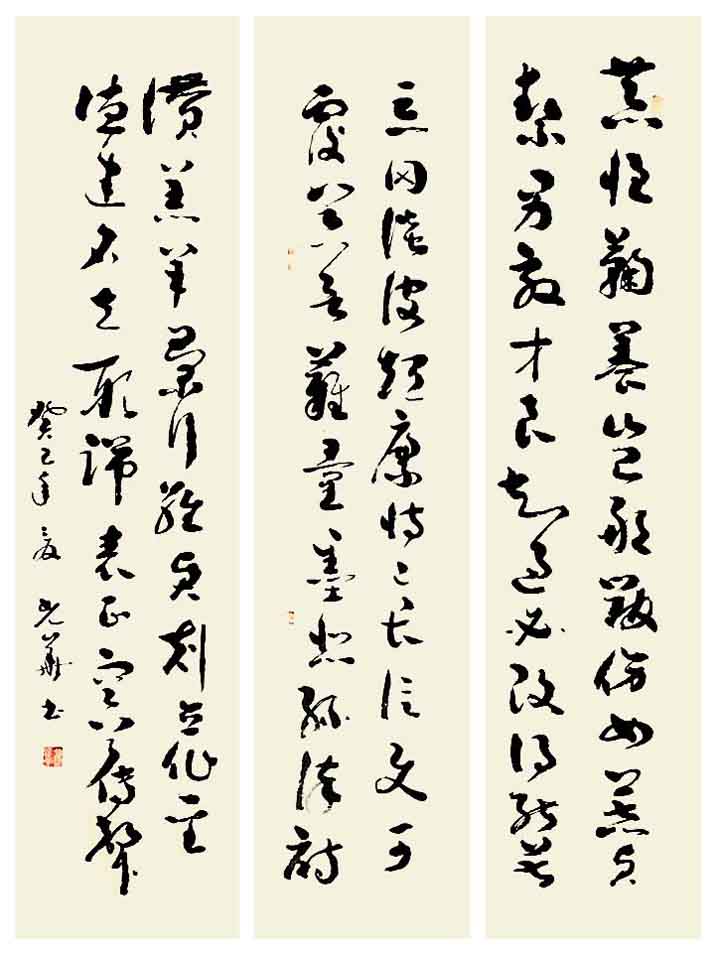 恭惟鞠養豈敢毀傷女慕貞
絜男效才良知過必改得能莫
忘罔談彼短靡恃己長信使可
覆器欲難量墨悲絲染詩
讚羔羊景行維賢剋念作聖
德建名立形端表正空谷傳聲
癸巳年夏光華书